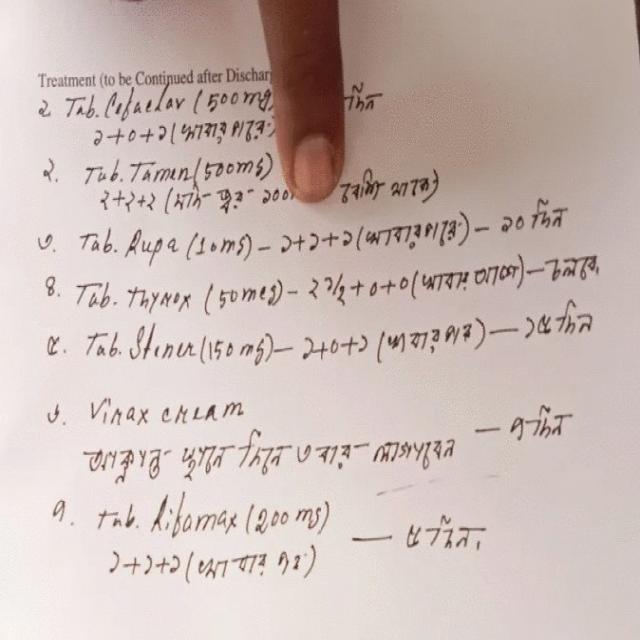 Treatment (to be Continued after Dischar
Tab. Cefaclav (500mg দিন
১+০+১ (খাবার পরে)
২. Tab. Tamen (500mg)
২+২+২ (যদি জ্বর ১০০ বেশি থাকে)
৩. Tab. Rupa (10mg) – ১+১+১ (খাবার পরে) – ১০ দিন
৪. Tab. Thyrox (50mcg) – ২ ১/২ +০+০ (খাবার আগে) – চলবে,
৫. Tab. (150mg) – ১+০+১ (খাবার পর) – ১৫ দিন
৬. Virax cream
আক্রান্ত স্থানে দিনে ৩ বার লাগাবেন – ৭ দিন
৭. Tab. Rifamax (200mg) – ৫ দিন।
১+১+১ (খাবার পর)